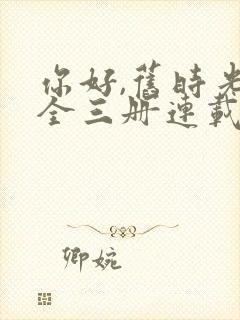 你好,舊時光
全三册連載
卿婉